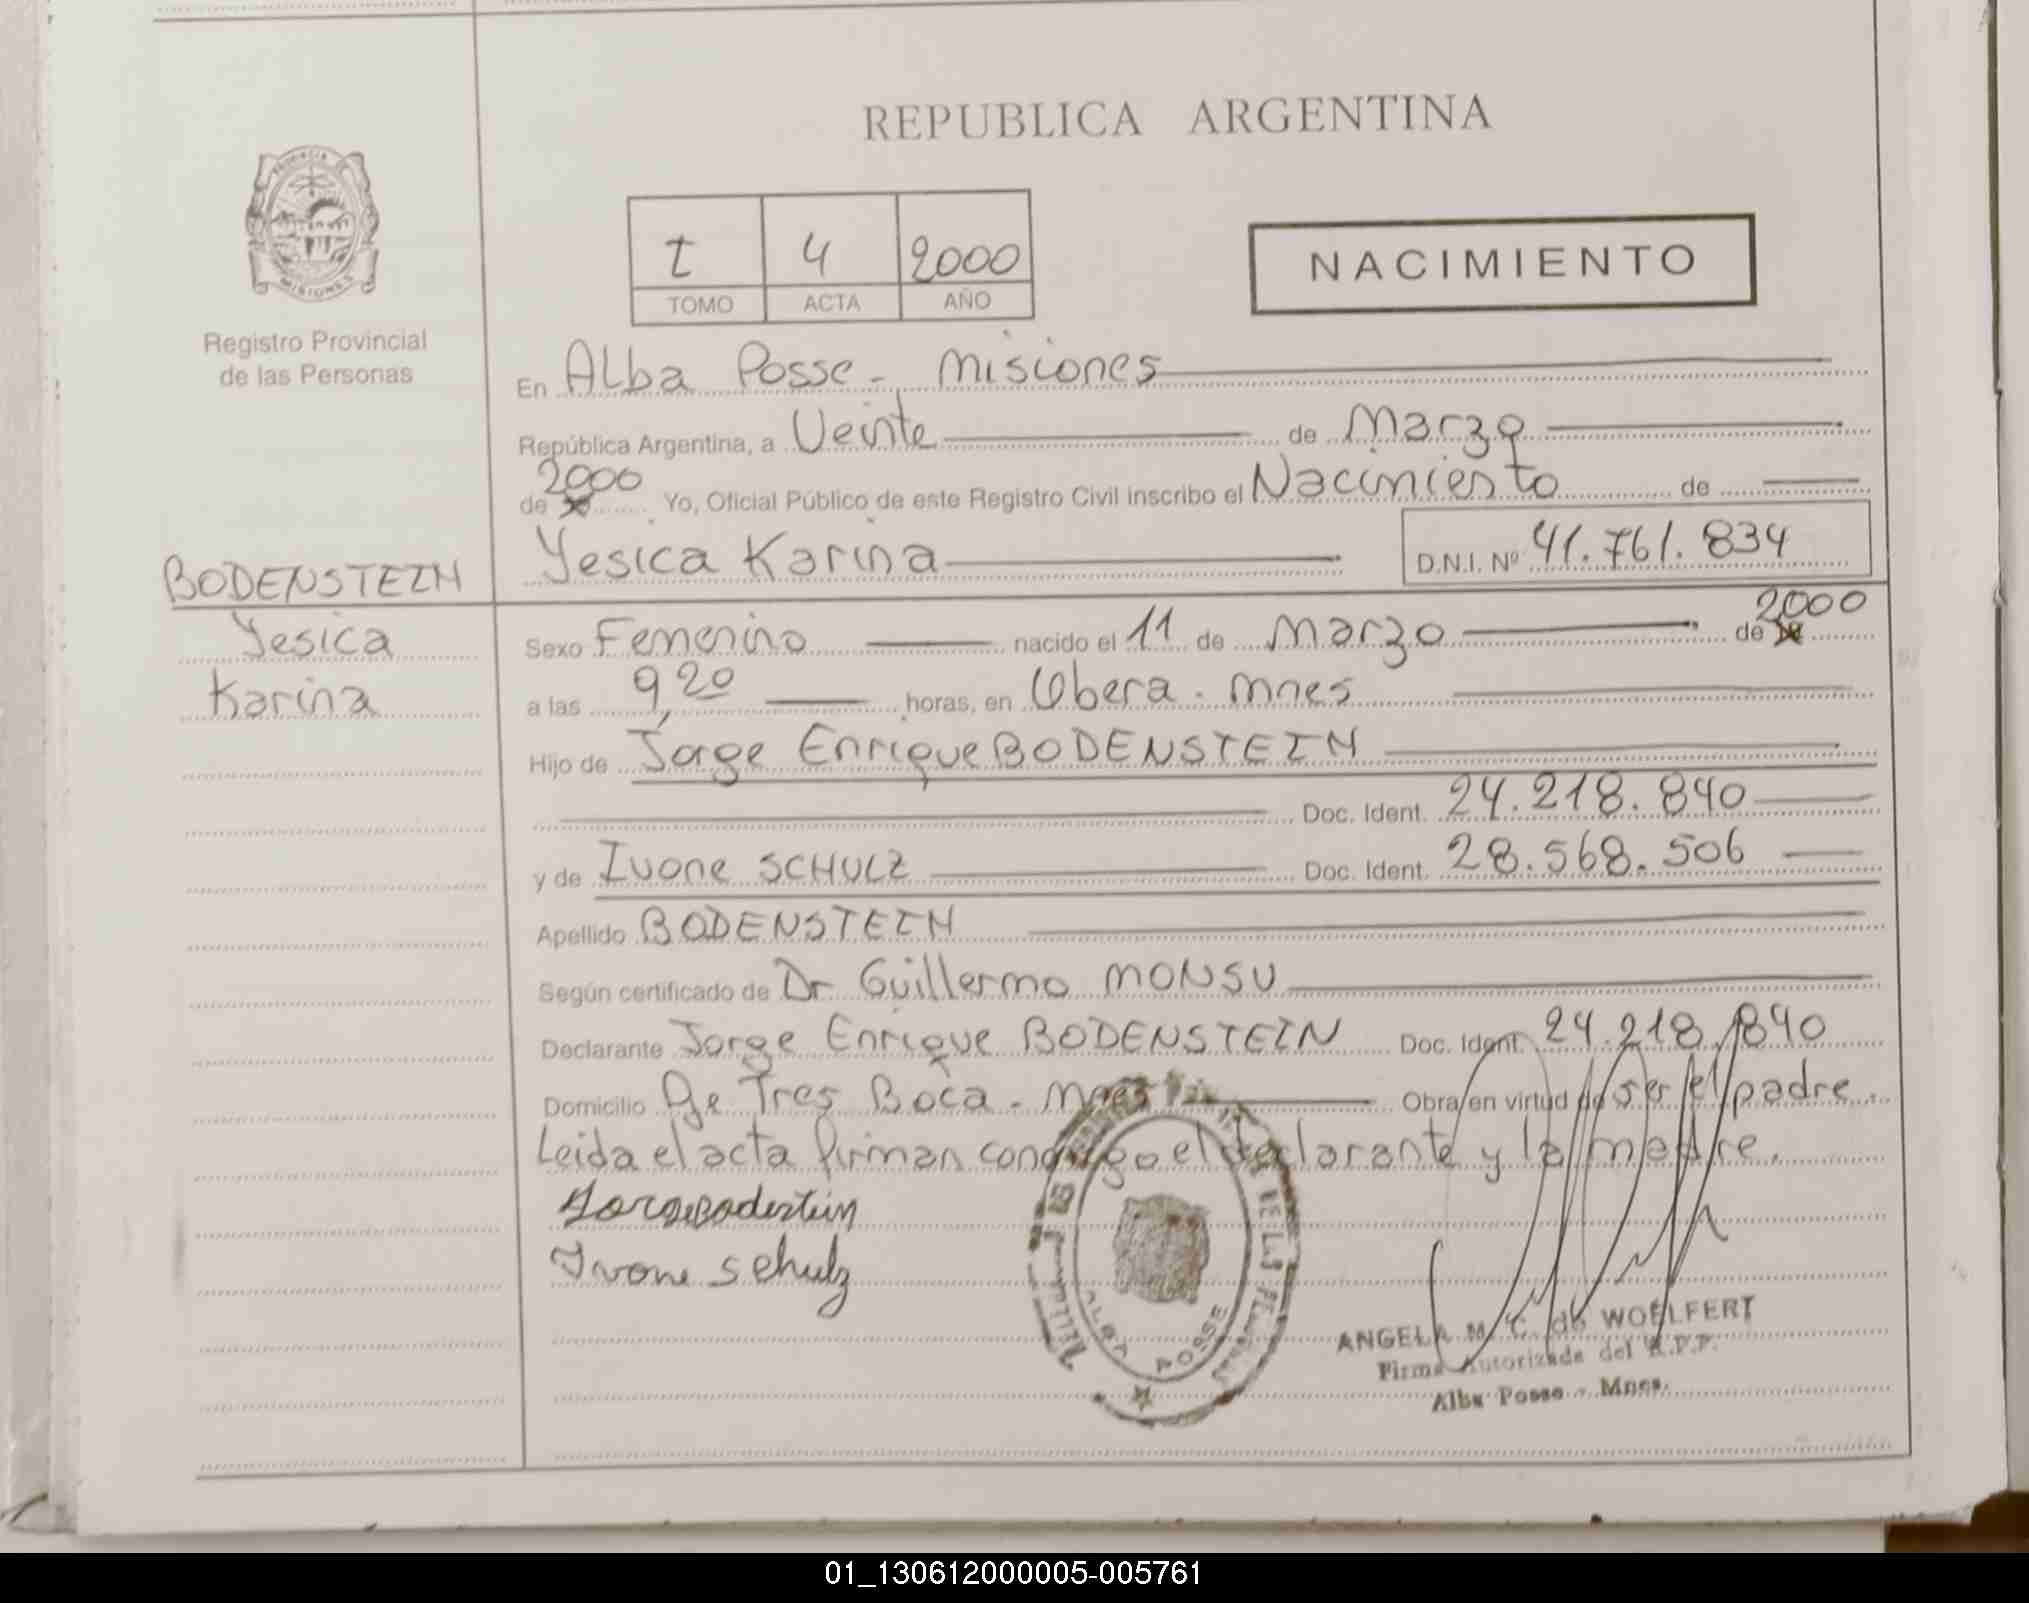 REPUBLICA ARGENTINA
PROVINCIA DE
MISIONES
Registro Provincial
de las Personas
4 2000
TOMO ACTA AÑO
NACIMIENTO
En Alba Posse - Misiones
República Argentina, a Veinte de Marzo
de 2000 Yo, Oficial Público de este Registro Civil inscribo el Nacimiento de
Yesica Karina D.N.I. Nº 41.761.834
BODENSTEIN
Yesica
Karina
Sexo Femenino nacido el 11 de Marzo de 2000
a las 9,20 horas, en Obera - Mnes
Hijo de Jorge Enrique BODENSTEIN
Doc. Ident. 24.218.840
y de Ivone SCHULZ Doc. Ident. 28.568.506
Apellido BODENSTEIN
Según certificado de Dr Guillermo MONSU
Declarante Jorge Enrique BODENSTEIN Doc. Ident. 24.218.840
Domicilio Tres Boca - Mnes Obra en virtud de ser el padre.
Leida el acta firman conmigo el declarante y la madre.
Ivone Schulz
ALBA POSSE
ANGELA M. C. de WOELFERT
Firma Autorizada del R.P.P.
Alba Posse - Mnes.
01_130612000005-005761